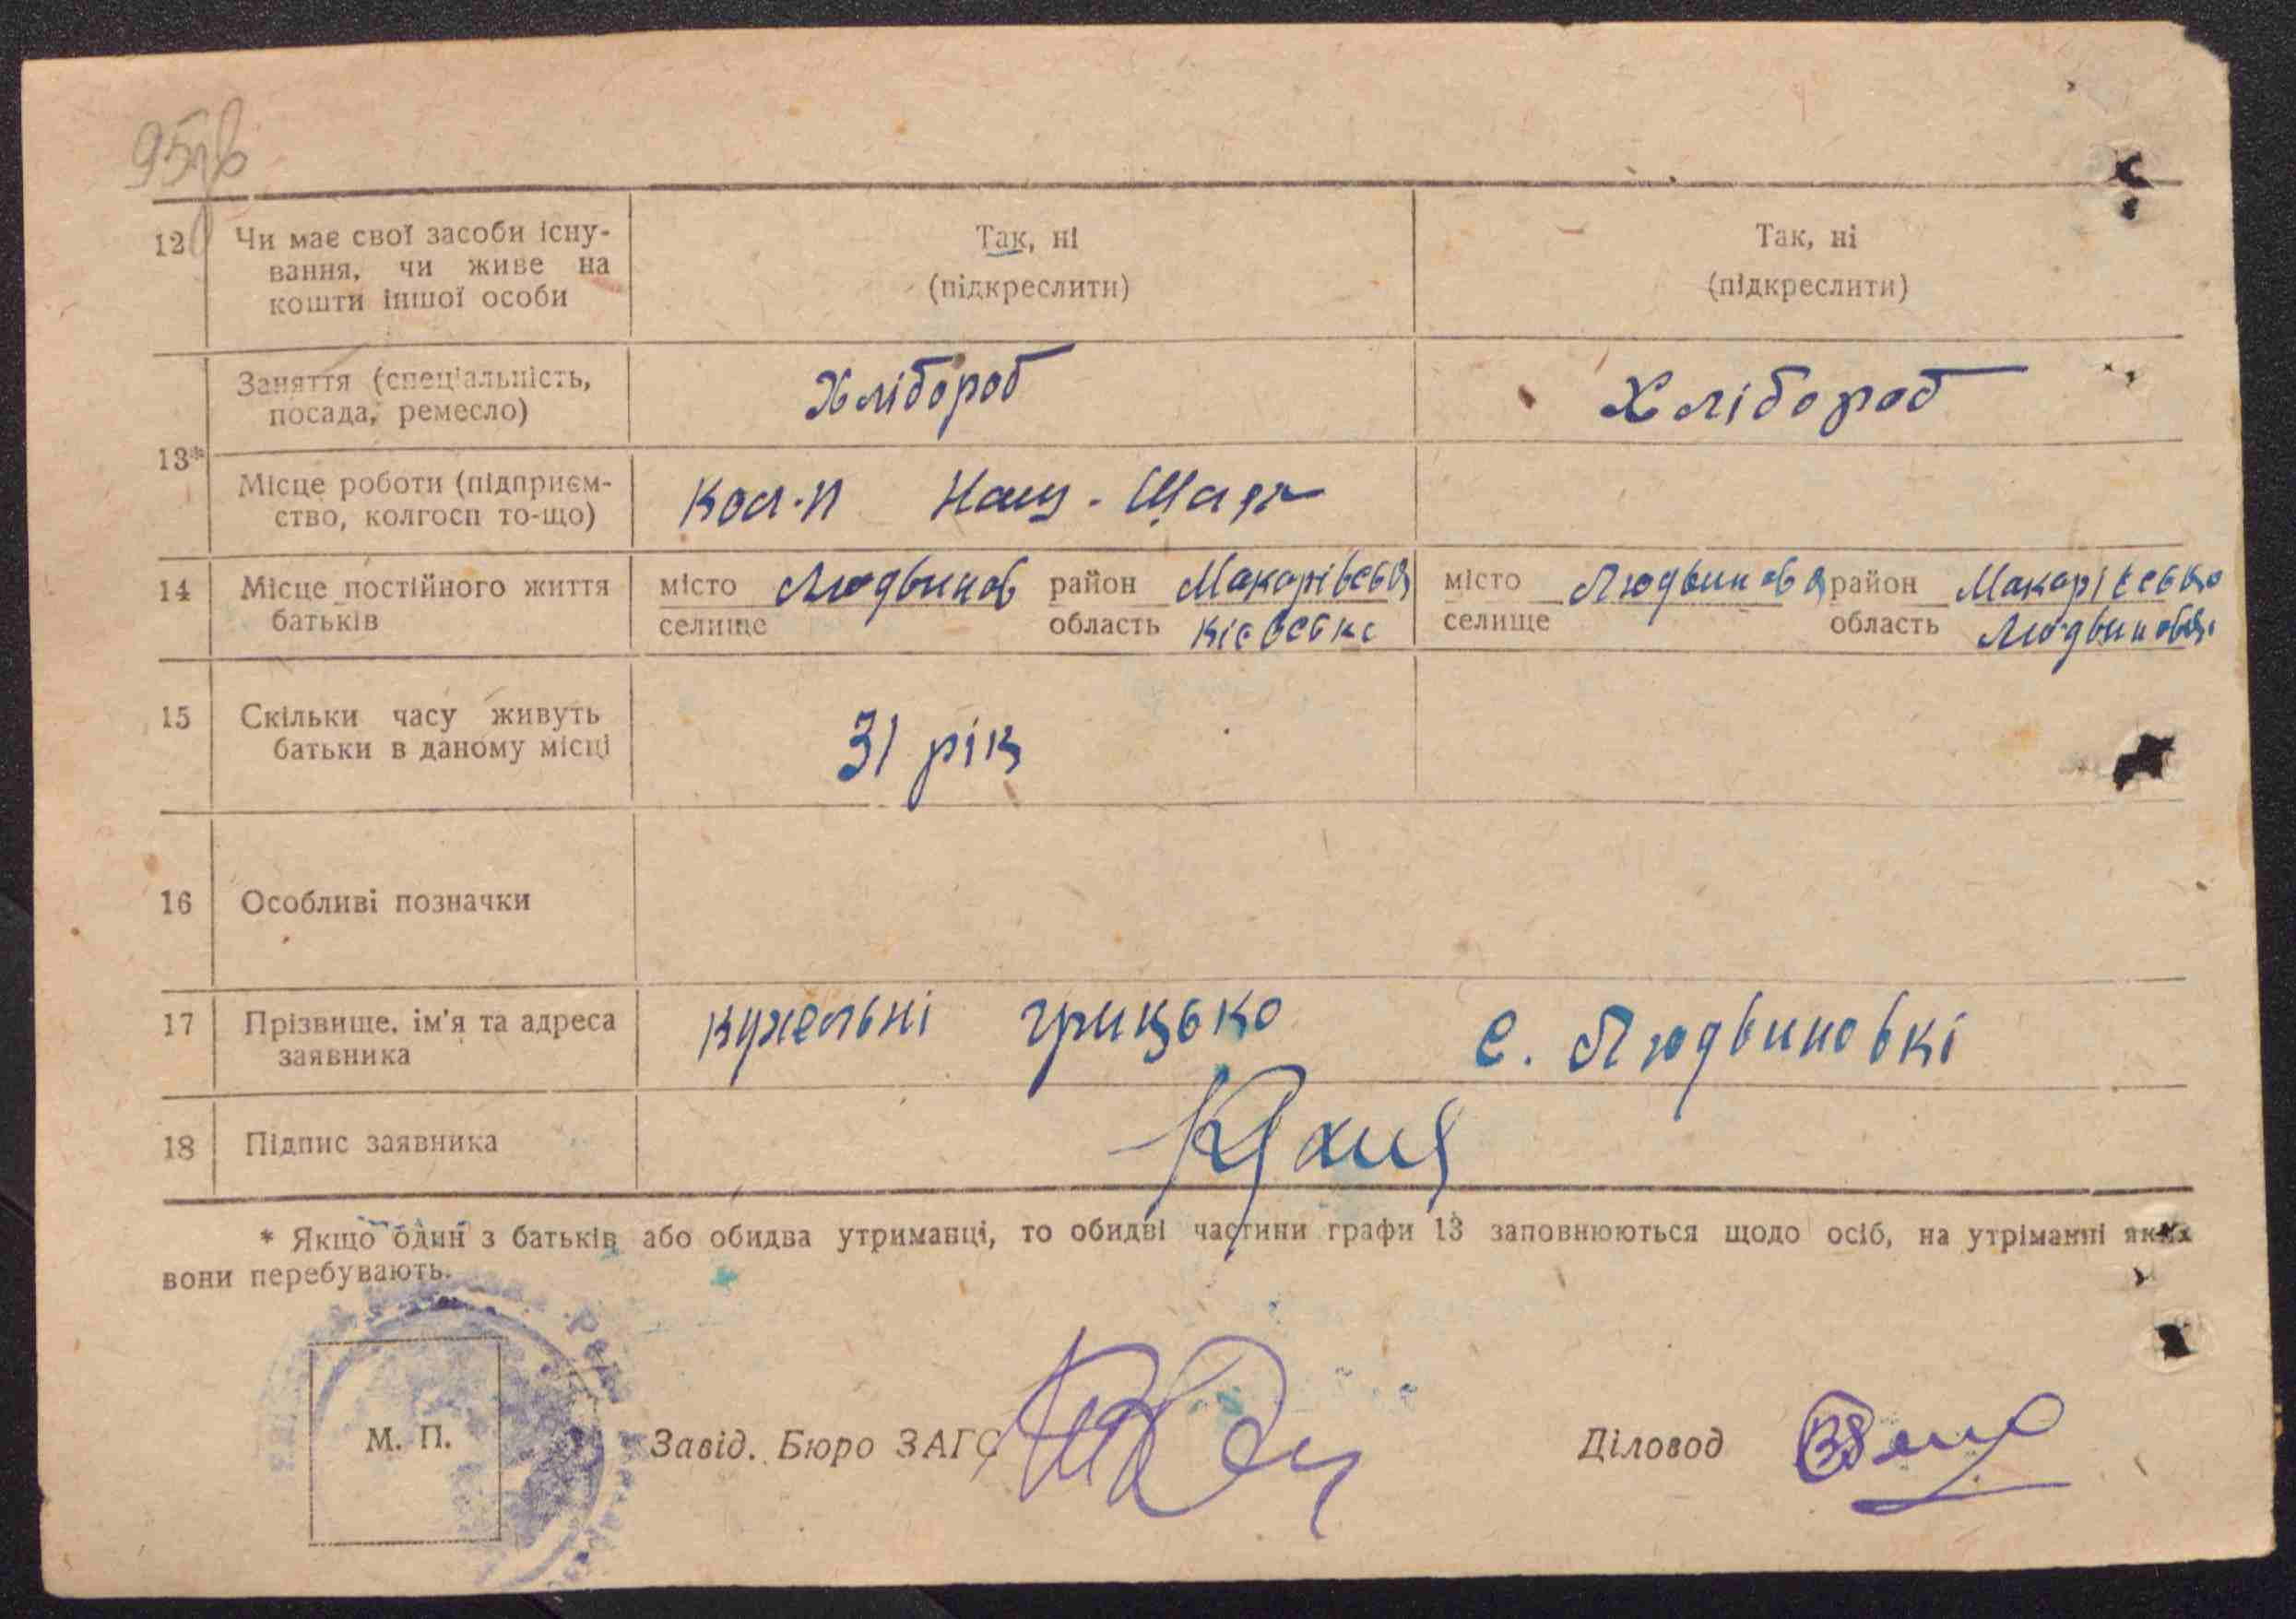 12 Чи має свої засоби існу-
вання, чи живе на
кошти іншої особи
Так, ні
(підкреслити)
Так, ні
(підкреслити)
13*
Заняття (спеціальність,
посада, ремесло)
Хлібороб
Хлібороб
Місце роботи (підприєм-
ство, колгосп то-що)
Наш-Шлях
14 Місце постійного життя
батьків
місто Людвинов район
селище область
місто район
селище область
15 Скільки часу живуть
батьки в даному місці
31 рік
16 Особливі позначки
17 Прізвище, ім'я та адреса
заявника
грицько с. Людвиновкі
18 Підпис заявника
* Якщо один з батьків або обидва утриманці, то обидві частини графи 13 заповнюються щодо осіб, на утріманні яких
вони перебувають.
М. П.
Завід. Бюро ЗАГС
Діловод